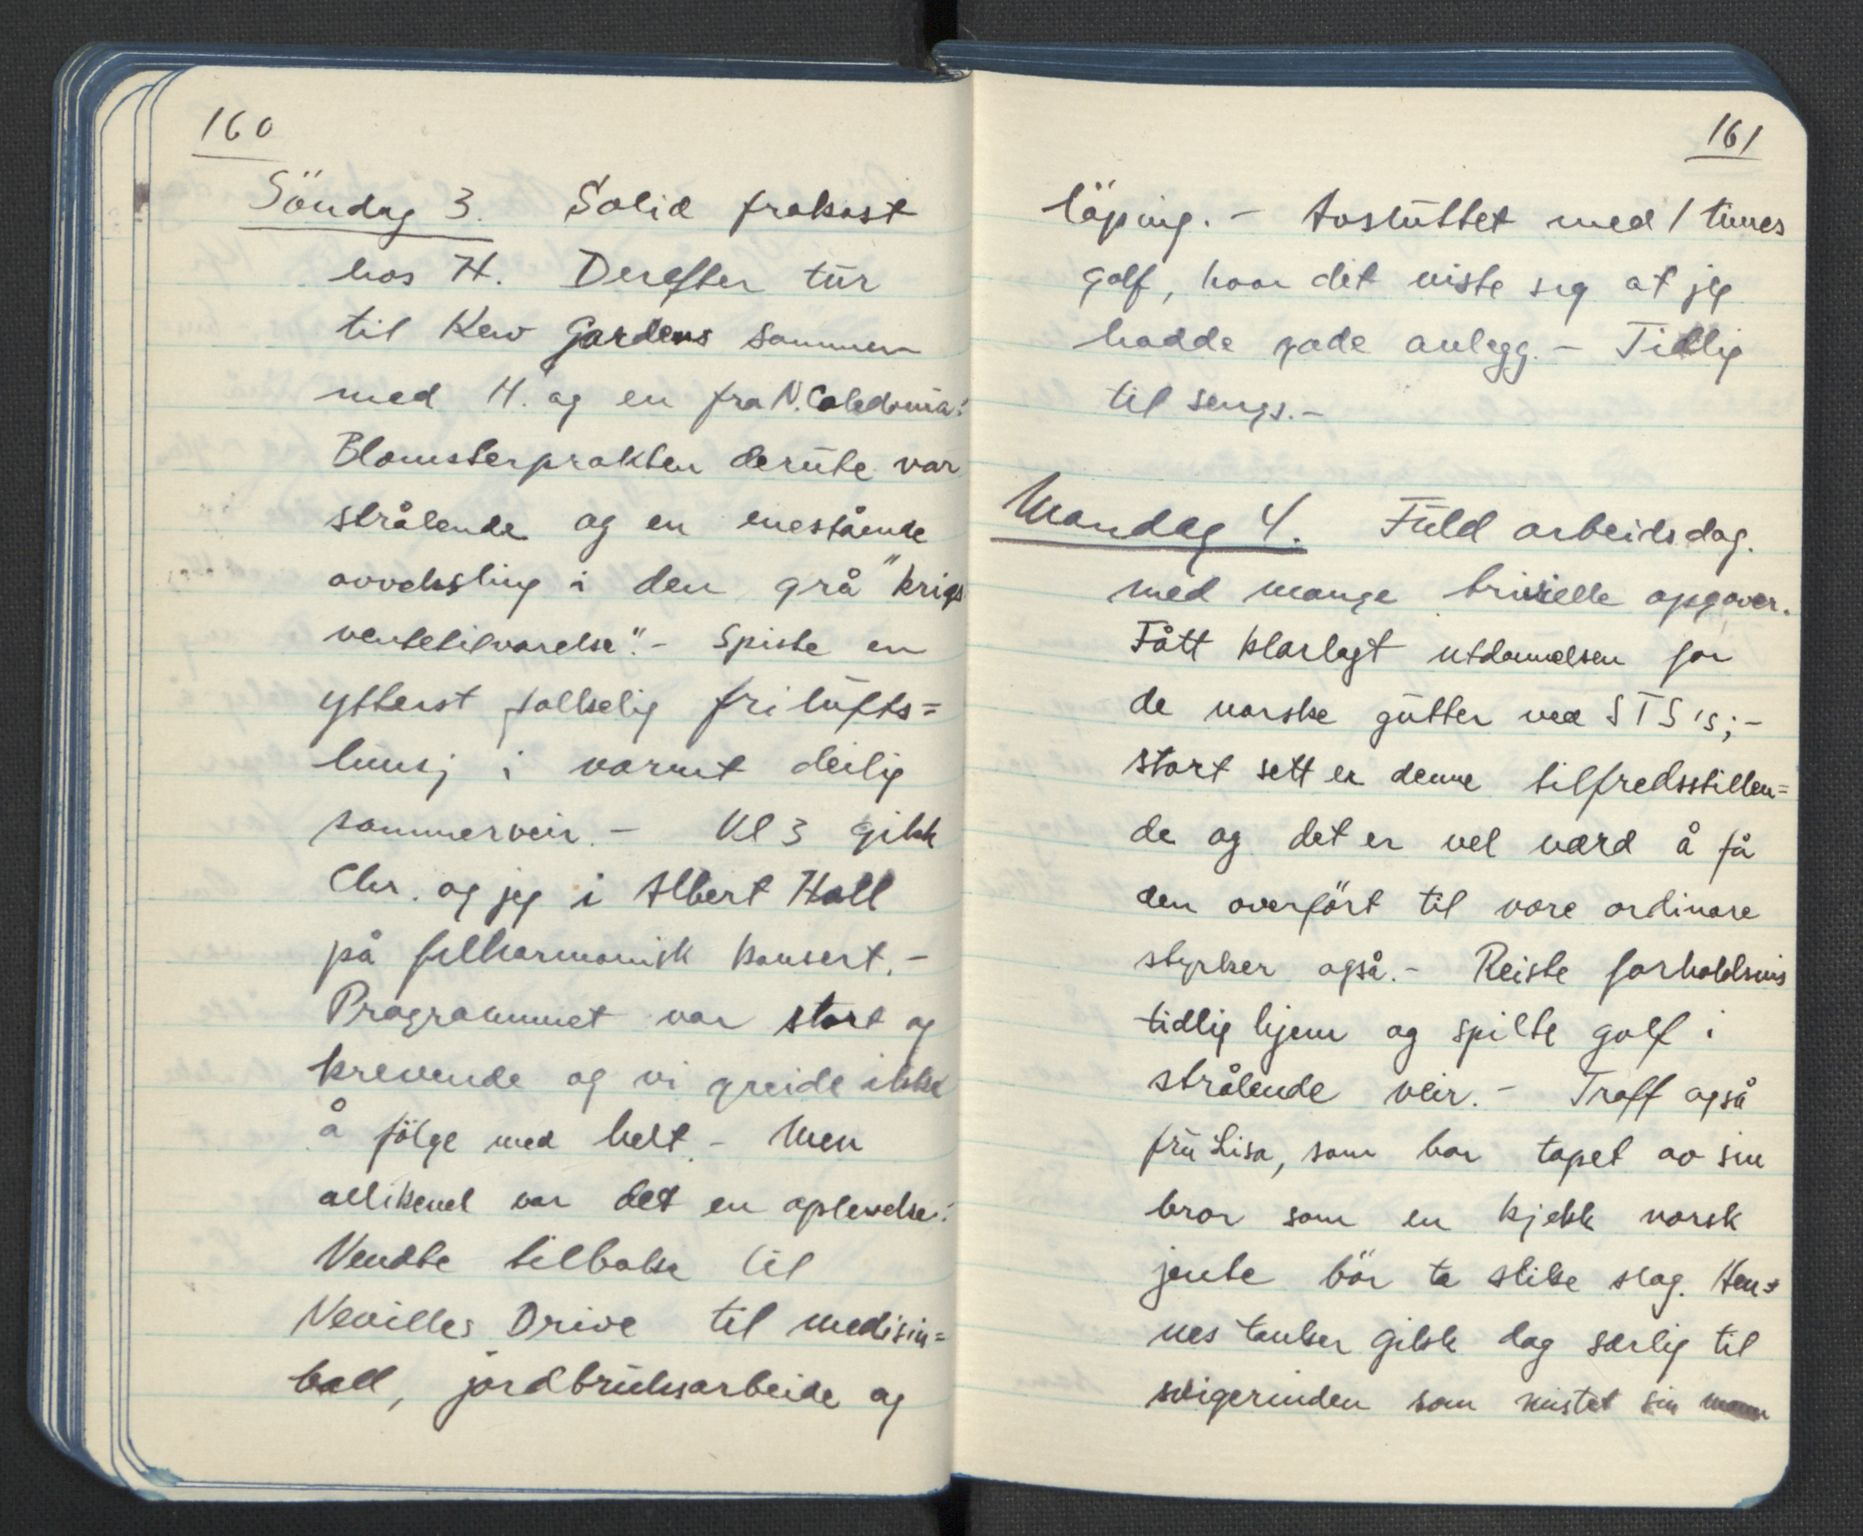 160
Söndag 3. Solid frokost
hos H. Derefter tur
til Kew Gardens sammen
med H. og en fra N. Caledonia.
Blomsterprakten derute var
strålende og en enestående
avveksling i den grå "krigs
ventetilværelse". - Spiste en
ytterst folkelig frilufts=
lunsj i varmt deilig
sommerveir. - Kl 3 gikk
Chr. og jeg i Albert Hall
på filharmonisk konsert. -
Programmet var stort og
krevende og vi greide ikke
å fölge med helt. - Men
allikevel var det en oplevelse.
Vendte tilbake til
Nevilles Drive til medisin=
ball, jordbruksarbeide og
161
löping. - Avsluttet med 1 times
golf, hvor det viste sig at jeg
hadde gode anlegg. - Tidlig
til sengs. -
Mandag 4. Fuld arbeidsdag.
med mange trivielle opgaver.
Fått klarlagt utdannelsen for
de norske gutter ved STS's; -
stort sett er denne tilfredsstillen=
de og det er vel værd å få
den overfört til våre ordinære
styrker også. - Reiste forholdsvis
tidlig hjem og spilte golf i
strålende veir. - Traff også
fru Lisa, som bar tapet av sin
bror som en kjekk norsk
jente bör ta slike slag. Hen=
nes tanker gikk dog særlig til
svigerinden som mistet sin mann